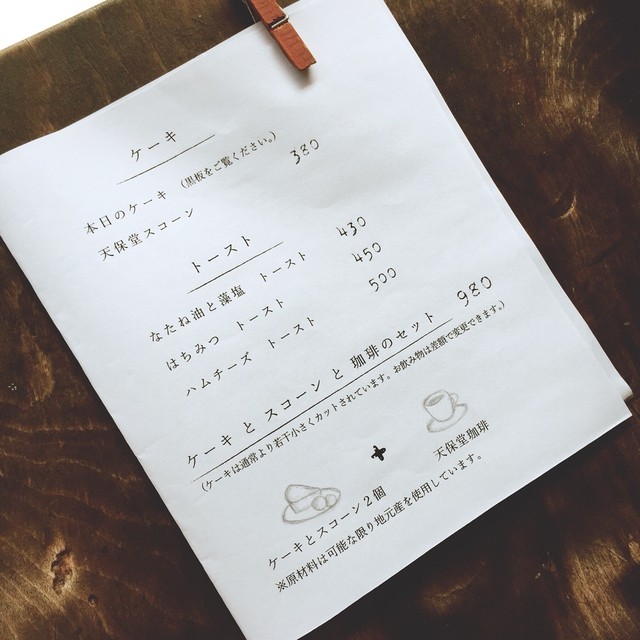 ケーキ
本日のケーキ (黒板をご覧ください。)
天保堂スコーン 380
トースト
なたね油と藻塩 トースト 430
はちみつ トースト 450
ハムチーズ トースト 500
ケーキ と スコーン と 珈琲のセット 980
(ケーキは通常より若干小さくカットされています。お飲み物は差額で変更できます。)
+
天保堂珈琲
ケーキとスコーン2個
※原材料は可能な限り地元産を使用しています。